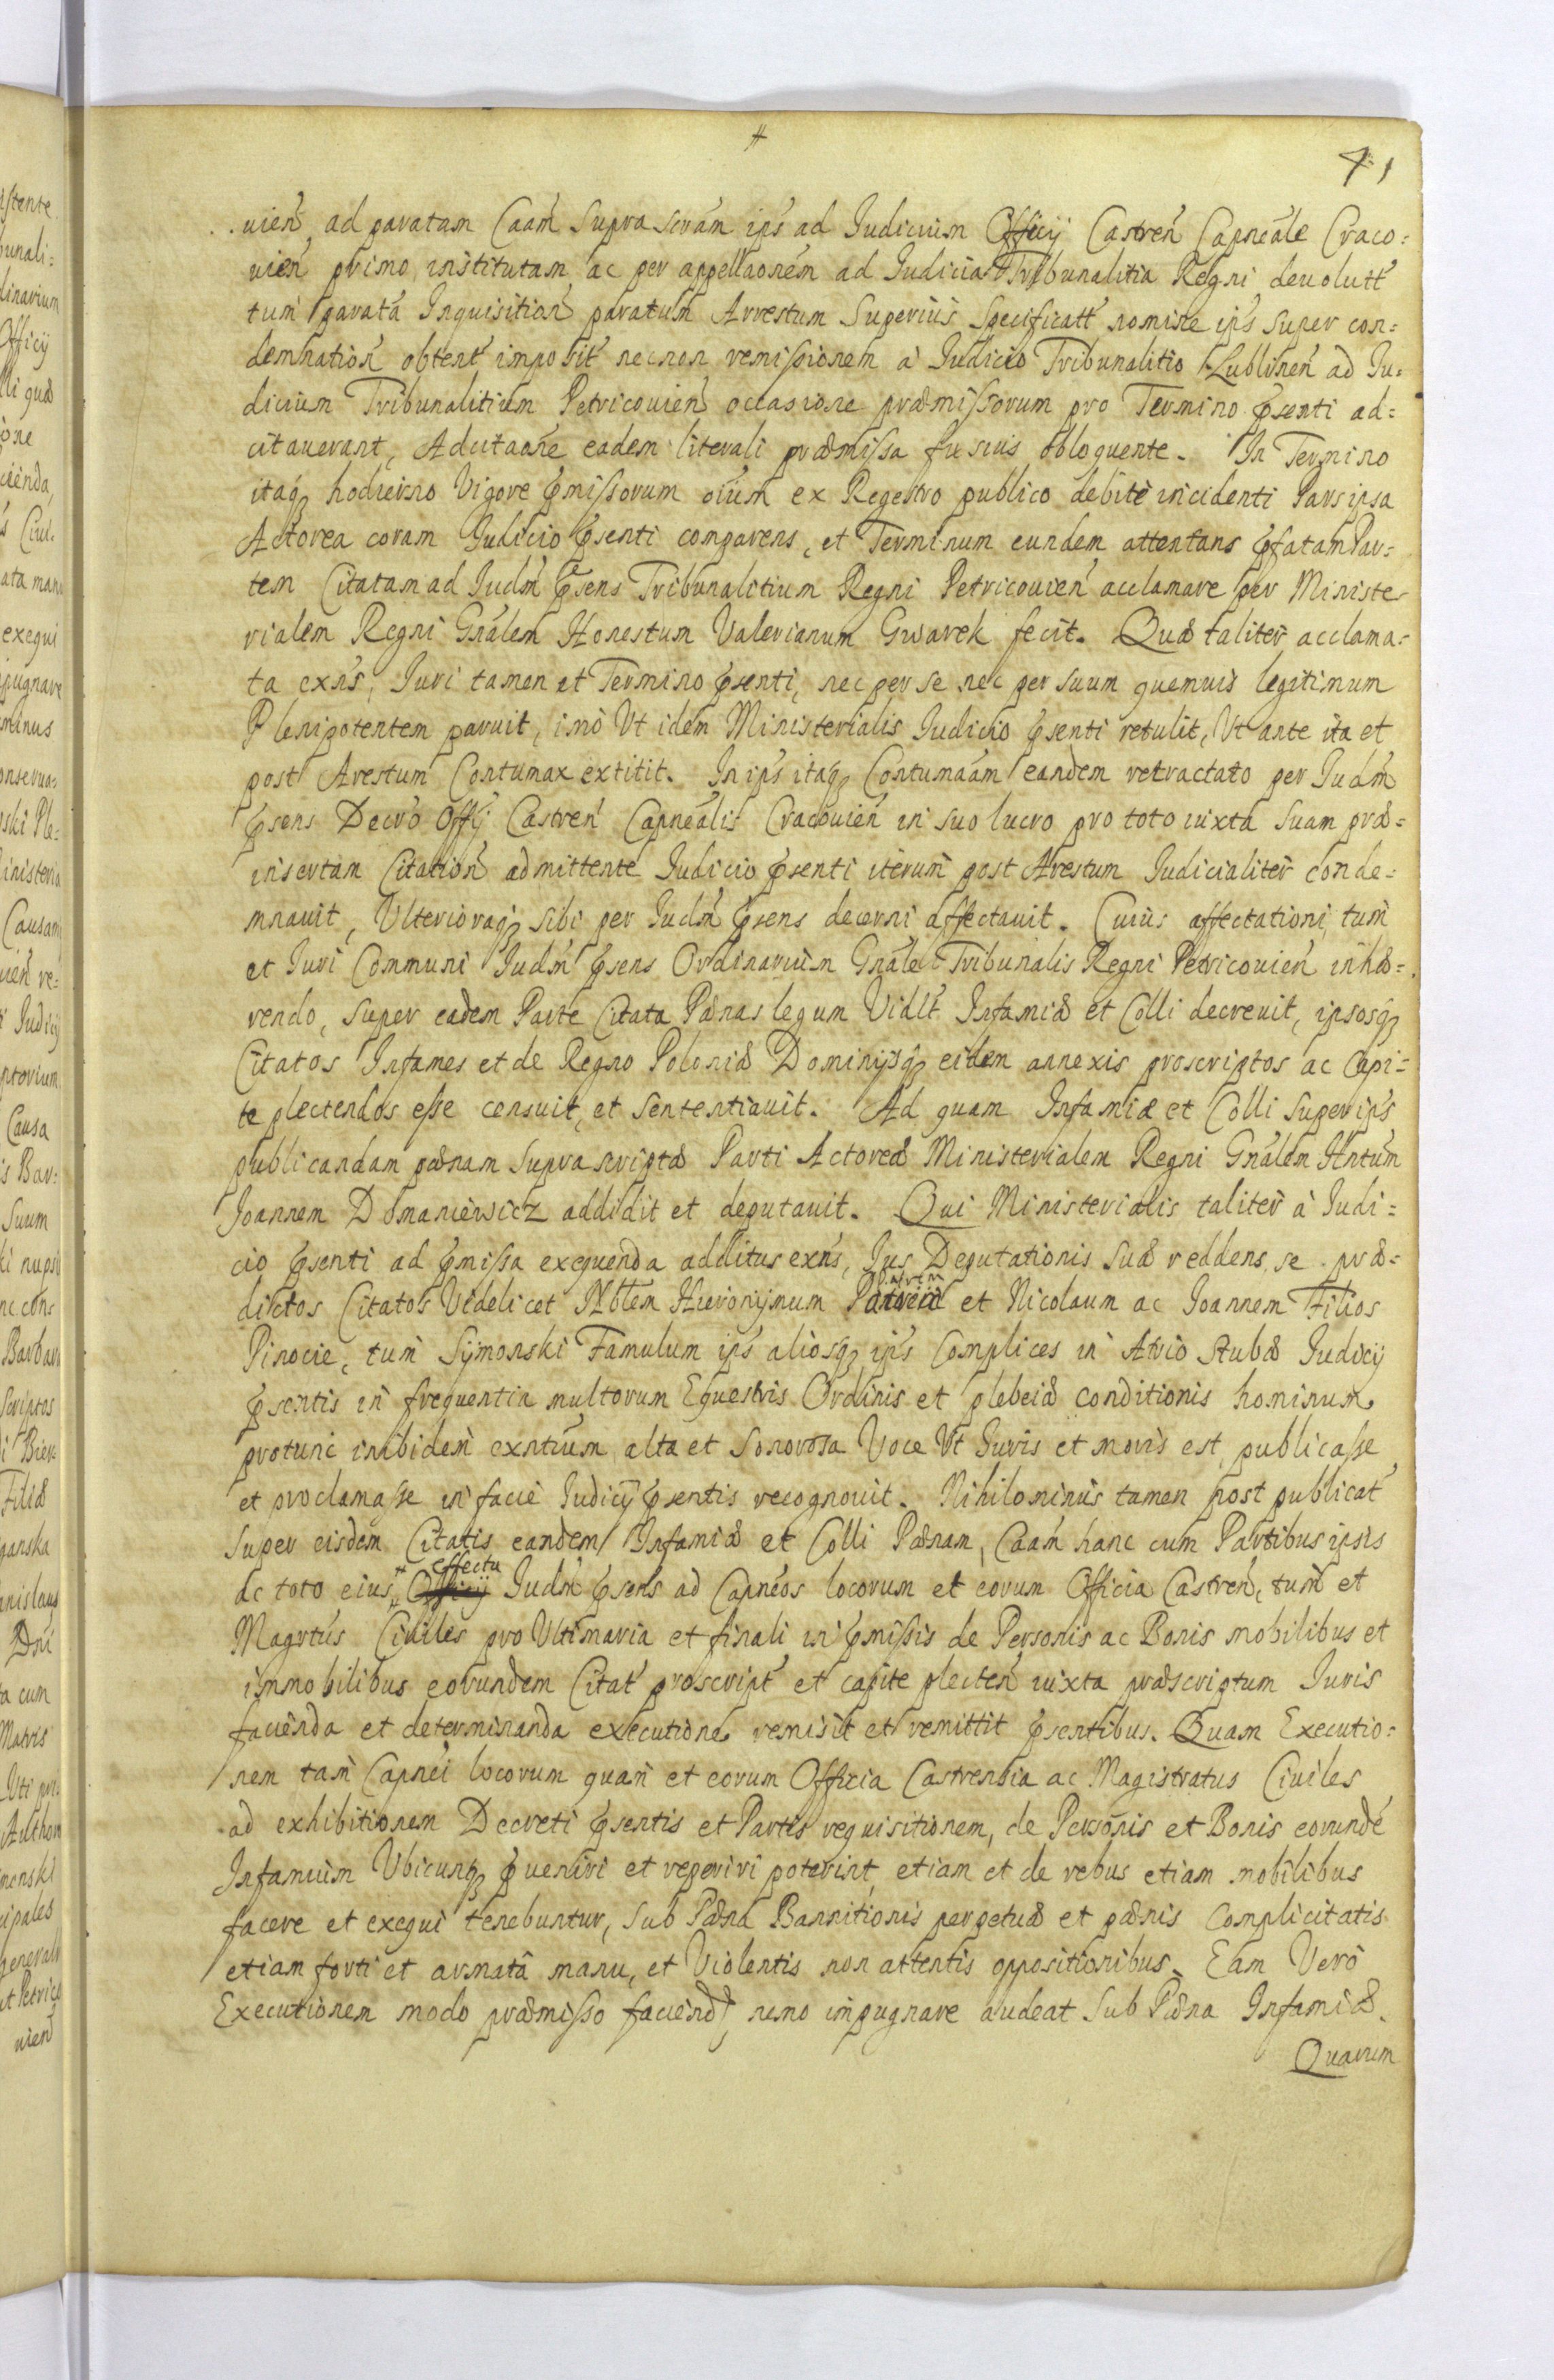 #
41
uień ad paratam Caam̃ Supra scrãm ip̃s ad Judicium Officij Castreñ Capneãle Craco:
uień primo institutam ac per appellaonẽm ad Judicia Tribunalitia Regni deuolutt̃
tum̃ paratã Inquisition̄ paratum̃ Arrestum Superiùs Specificatt̃ nomine ip̃s super con:
demnation̄ obtent̃ imposit̃ necnon remissionem à Judicio Tribunalitio Lublineń ad Ju:
dicium Tribunalitium Petricouień occasione præmissorum pro Termino p̃senti ad:
citauerant, Adcitaone eadem literali præmissa fusius obloquente. In Termino
itaq̃ hodierno Vigore p̃missorum oiũm ex Regestro publico debitè incidenti Pars ipsa
Actorea coram Judicio p̃senti comparens, et Terminum eundem attentans p̃fatam Par:
tem Citatam ad Judm̃ p̃sens Tribunalitium Regni Petricouień acclamare per Ministe
rialem Regni Gnãlem Honestum Valerianum Gwarek fecit. Quæ taliter acclama:
ta exñs, Juri tamen et Termino p̃senti, nec per se nec per suum quemuis legitimum
Plenipotentem paruit, imò Vt idem Ministerialis Judicio p̃senti retulit, Vt ante ita et
post Arestum Contumax extitit. In ip̃s itaq̃ Contumaãm eandem retractato per Judm̃
p̃sens Decrõ Off̃ij Castreñ Capneãlis Cracouień in suo lucro pro toto iuxta Suam præ=
insertam Citation̄ admittente Judicio p̃senti iterum̃ post Arestum Judicialiter conde:
mnauit, Ulterioraq̃ sibi per Judm̃ p̃sens decerni affectauit. Cuius affectationi, tum̃
et Juri Communi Judm̃ p̃sens Ordinarium Gnãle Tribunalis Regni Petricouień inhæ=
rendo, super eadem Parte Citata Pænas legum Vidlt̃ Infamiæ et Colli decreuit, ipsosq̃
Citatos Infames et de Regno Poloniæ Dominijsq̃ eidem annexis proscriptos ac Capi:
te plectendos esse censuit, et sententiauit. Ad quam Infamiæ et Colli super ip̃s
publicandam pænam supra scriptæ Parti Actoreæ Ministerialem Regni Gnãlem Hntũm
Joannem Domaniewicz addidit et deputauit. Qui Ministerialis taliter à Judi:
cio p̃senti ad p̃missa exequenda additus exñs, Jus Deputationis suæ reddens, se præ:
dictos Citatos Videlicet Nblẽm Hieronymum Patrem et Nicolaum ac Joannem Filios
Pinocie, tum̃ Symonski Famulum ip̃s aliosq̃ ip̃s Complices in Atrio Stubæ Judicij
p̃sentis in frequentia multorum Equestris Ordinis et plebeiæ conditionis hominum
protunc inibidem exntium̃, alta et Sonorosa Voce Vt Juris et moris est, publicasse
et proclamasse in facie Judicij p̃sentis recognouit. Nihilominus tamen post publicat̃
super eisdem Citatis eandem Infamiæ et Colli Pænam, Caam̃ hanc cum Partibus ipsis
ac toto eius effectu Judm̃ p̃sens ad Capnẽos locorum et eorum Officia Castreñ, tum̃ et
Magrtũs Ciuiles pro Ultimaria et finali in p̃missis de Personis ac Bonis mobilibus et
immobilibus eorundem Citat̃ proscript̃ et capite plecteñ iuxta præscriptum Juris
facienda et determinanda executione remisit et remittit p̃sentibus. Quam Executio:
nem tam̃ Capneĩ locorum quam̃ et eorum Officia Castrensia ac Magistratus Ciuiles
ad exhibitionem Decreti p̃sentis et Partis requisitionem, de Personis et Bonis eorundẽ
Infamium̃ Ubicunq̃ p̃ueniri et reperiri poterint, etiam et de rebus etiam mobilibus
facere et exequi tenebuntur, sub Pæna Bannitionis perpetuæ et pænis Complicitatis
etiam forti et armatâ manu, et Violentis non attentis oppositionibus. Eam Verò
Executionem modo præmisso faciend̃, nemo impugnare audeat sub Pæna Infamiæ.
Quarum